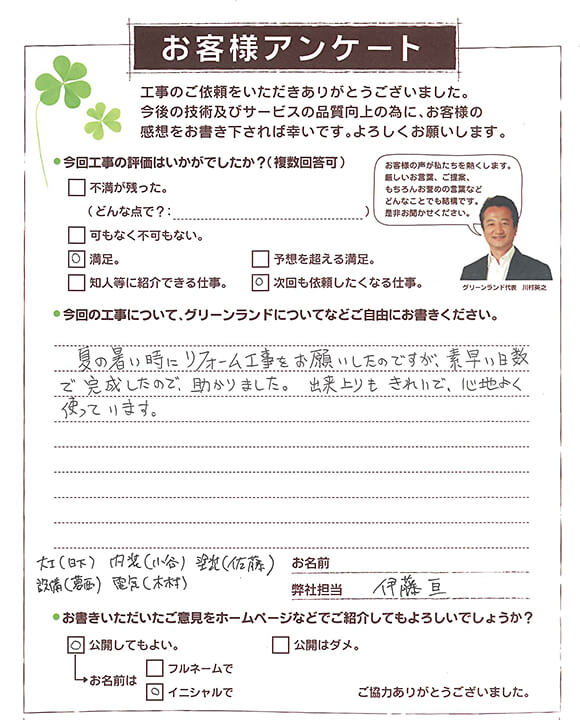 お客様アンケート
工事のご依頼をいただきありがとうございました。
今後の技術及びサービスの品質向上の為に、お客様の
感想をお書き下されば幸いです。よろしくお願いします。
今回工事の評価はいかがでしたか?(複数回答可)
不満が残った。
(どんな点で?:)
可もなく不可もない。
満足。
予想を超える満足。
知人等に紹介できる仕事。
次回も依頼したくなる仕事。
お客様の声が私たちを熱くします。
厳しいお言葉、ご提案、
もちろんお誉めの言葉など
どんなことでも結構です。
是非お聞かせください。
グリーンランド代表 川村英之
今回の工事について、グリーンランドについてなどご自由にお書きください。
夏の暑い時にリフォーム工事をお願いしたのですが、素早い日数
で完成したので、助かりました。出来上りもきれいで、心地よく
使っています。
大工(日下) 内装(小谷) 塗装(佐藤)
設備(葛西) 電気(木村)
お名前
弊社担当 伊藤 亘
お書きいただいたご意見をホームページなどでご紹介してもよろしいでしょうか?
公開してもよい。
公開はダメ。
お名前は
フルネームで
イニシャルで
ご協力ありがとうございました。